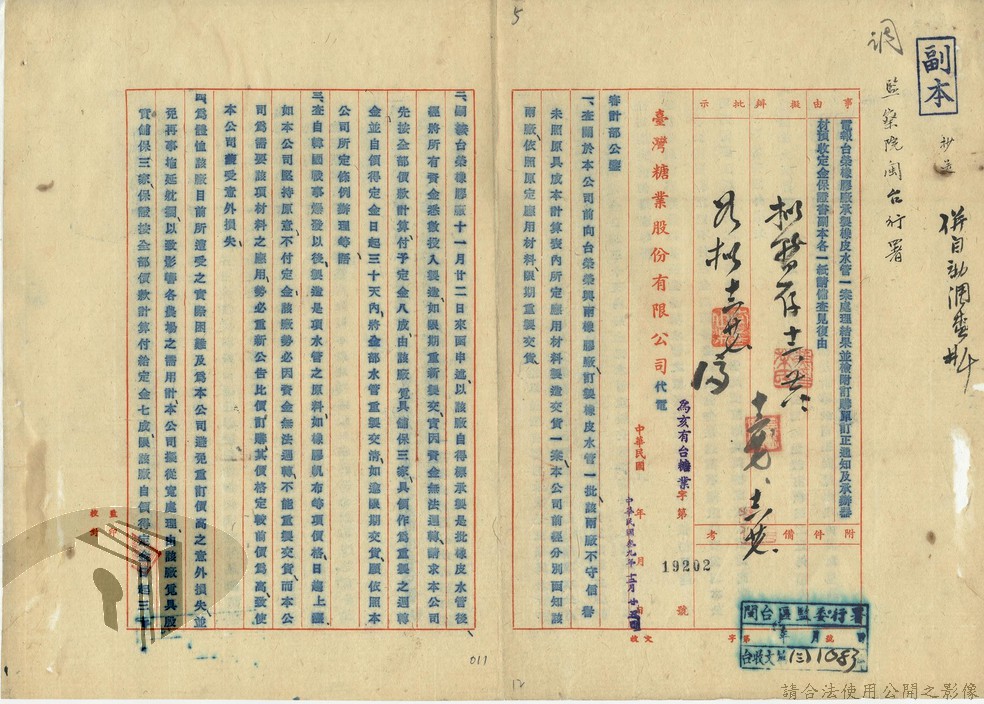 5
調
副本
抄送
監察院閩台行署
併自動調查卅
事由
擬辦
批示
電報台榮橡膠廠承製橡皮水管一案處理結果並檢附訂購單訂正通知及承辦器
材預收定金保證書副本各一紙請備查見復由
附件
備考
擬暫存
臺灣糖業股份有限公司代電
為亥有台糖業字第 19202 號
中華民國 年 月 日
中華民國參九年十二月廿五日
收文 字第 號
閩台區監委行署
台收文 1083
審計部公鑒
一、查關於本公司前向台榮榮興兩橡膠廠訂製橡皮水管一批該兩廠不守信譽
未照原具成本計算表內所定應用材料製造交貨一案本公司前經分別函知該
兩廠依照原定應用材料限期重製交貨
二、嗣接台榮橡膠廠十一月廿二日來函申述以該廠自得標承製是批橡皮水管後
經將所有資金悉數投入製造如限期重新製交實因資金無法週轉請求本公司
先按全部價款計算付予定金八成由該廠覓具舖保三家具備作為重製之週轉
金並自領得定金日起三十天內將全部水管重製交清如逾限期交貨願依照本
公司所定條例辦理等語
三、查自韓國戰事爆發以後製造是項水管之原料如橡膠帆布等項價格日趨上漲
如本公司堅持原意不付定金該廠勢必因資金無法週轉不能重製交貨而本公
司為需要該項材料之應用勢必重新公告比價訂購其價格定較前價為高致使
本公司蒙受意外損失
四、為體恤該廠目前所遭受之實際困難及為本公司避免重訂價高之意外損失並
免再事拖延躭擱以致影響各農場之需用計本公司擬從寬處理由該廠覓具殷
實舖保三家保證按全部價款計算付給定金七成限該廠自領得定金日起三十
監印
校對
011
12
請合法使用公開之影像